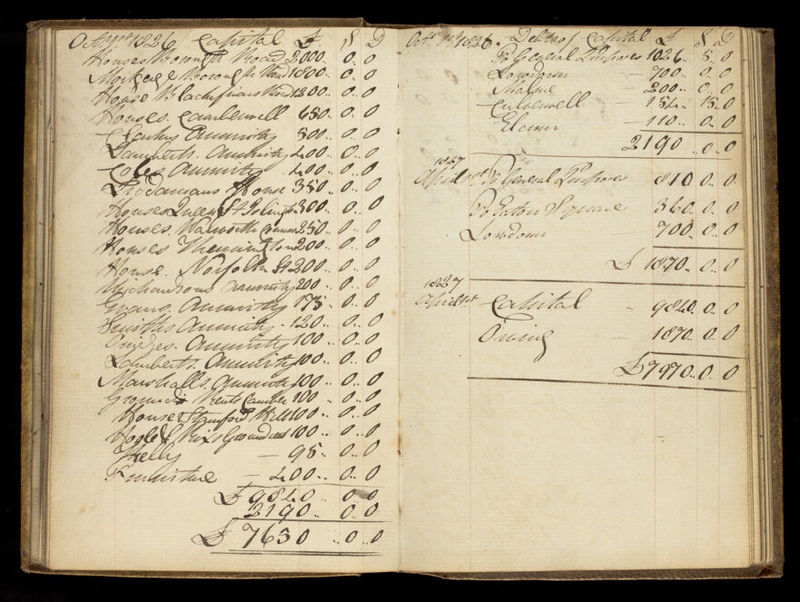 1826 Capital £ S D
Houses Borough Road 2000.. 0.. 0
Borough Road 1800.. 0.. 0
House Blackfriars Road 1200.. 0.. 0
Houses. Camberwell 650.. 0.. 0
Annuity 500.. 0.. 0
Lamberts. Annuity 400.. 0.. 0
Coles Annuity 400.. 0.. 0
House 350.. 0.. 0
Houses Queen St Islington 300.. 0.. 0
Houses. Walworth Common 250.. 0.. 0
Houses Kennington 200.. 0.. 0
House. Norfolk St 200.. 0.. 0
Annuity 200.. 0.. 0
Evans. Annuity 175.. 0.. 0
Smiths Annuity. 120.. 0.. 0
Annuity 100.. 0.. 0
Lamberts. Annuity 100.. 0.. 0
Marshalls. Annuity 100.. 0.. 0
Ground Rents 100.. 0.. 0
House Stamford Hill 100.. 0.. 0
100.. 0.. 0
Kelly — 95.. 0.. 0
Furniture — 400.. 0.. 0
£ 9840.. 0.. 0
2190.. 0.. 0
£ 7650.. 0.. 0
1826. Debts of Capital £ S D
To General Purposes 1026.. 5.. 0
Lowdown — 700.. 0.. 0
200.. 0.. 0
154.. 15.. 0
— 110.. 0.. 0
2190.. 0.. 0
1827
April 1st To General Purposes 810.. 0.. 0
To Eaton Square 360.. 0.. 0
Lowdown 700.. 0.. 0
£ 1870.. 0.. 0
1827
April 1st Capital — 9840.. 0.. 0
Owing — 1870.. 0.. 0
£ 7970.. 0.. 0